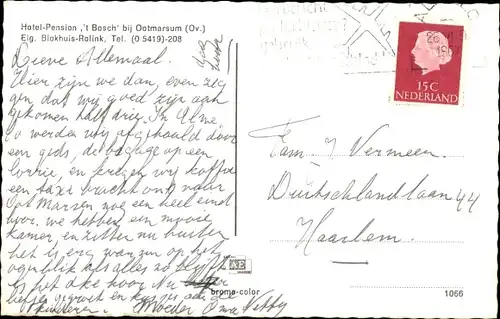 Hotel-Pension „'t Bosch' bij Ootmarsum (Ov.)
Eig. Blokhuis-Rolink, Tel. (0 5419)-208
Lieve Allemaal.
Hier zijn we dan, even zeg
gen dat wij goed zijn aan
gekomen half drie. In Alme
lo werden wij opgehaald door
een gids, de bagage op een
lorrie, en kregen wij koffie
een taxi bracht ons naar
Oot Marsen nog een heel eind
hoor. we hebben een mooie
kamer, en zitten nu buiten
het is erg warm op het
ogenblik als alles zo blijft
is het oke hoor Nu
beste groeten en
kinderen. Moeder Oma Nebby
15 C
NEDERLAND
Fam. J Vermeer.
Duitschlandlaan 44
Haarlem.
AE
bromo-color
1066